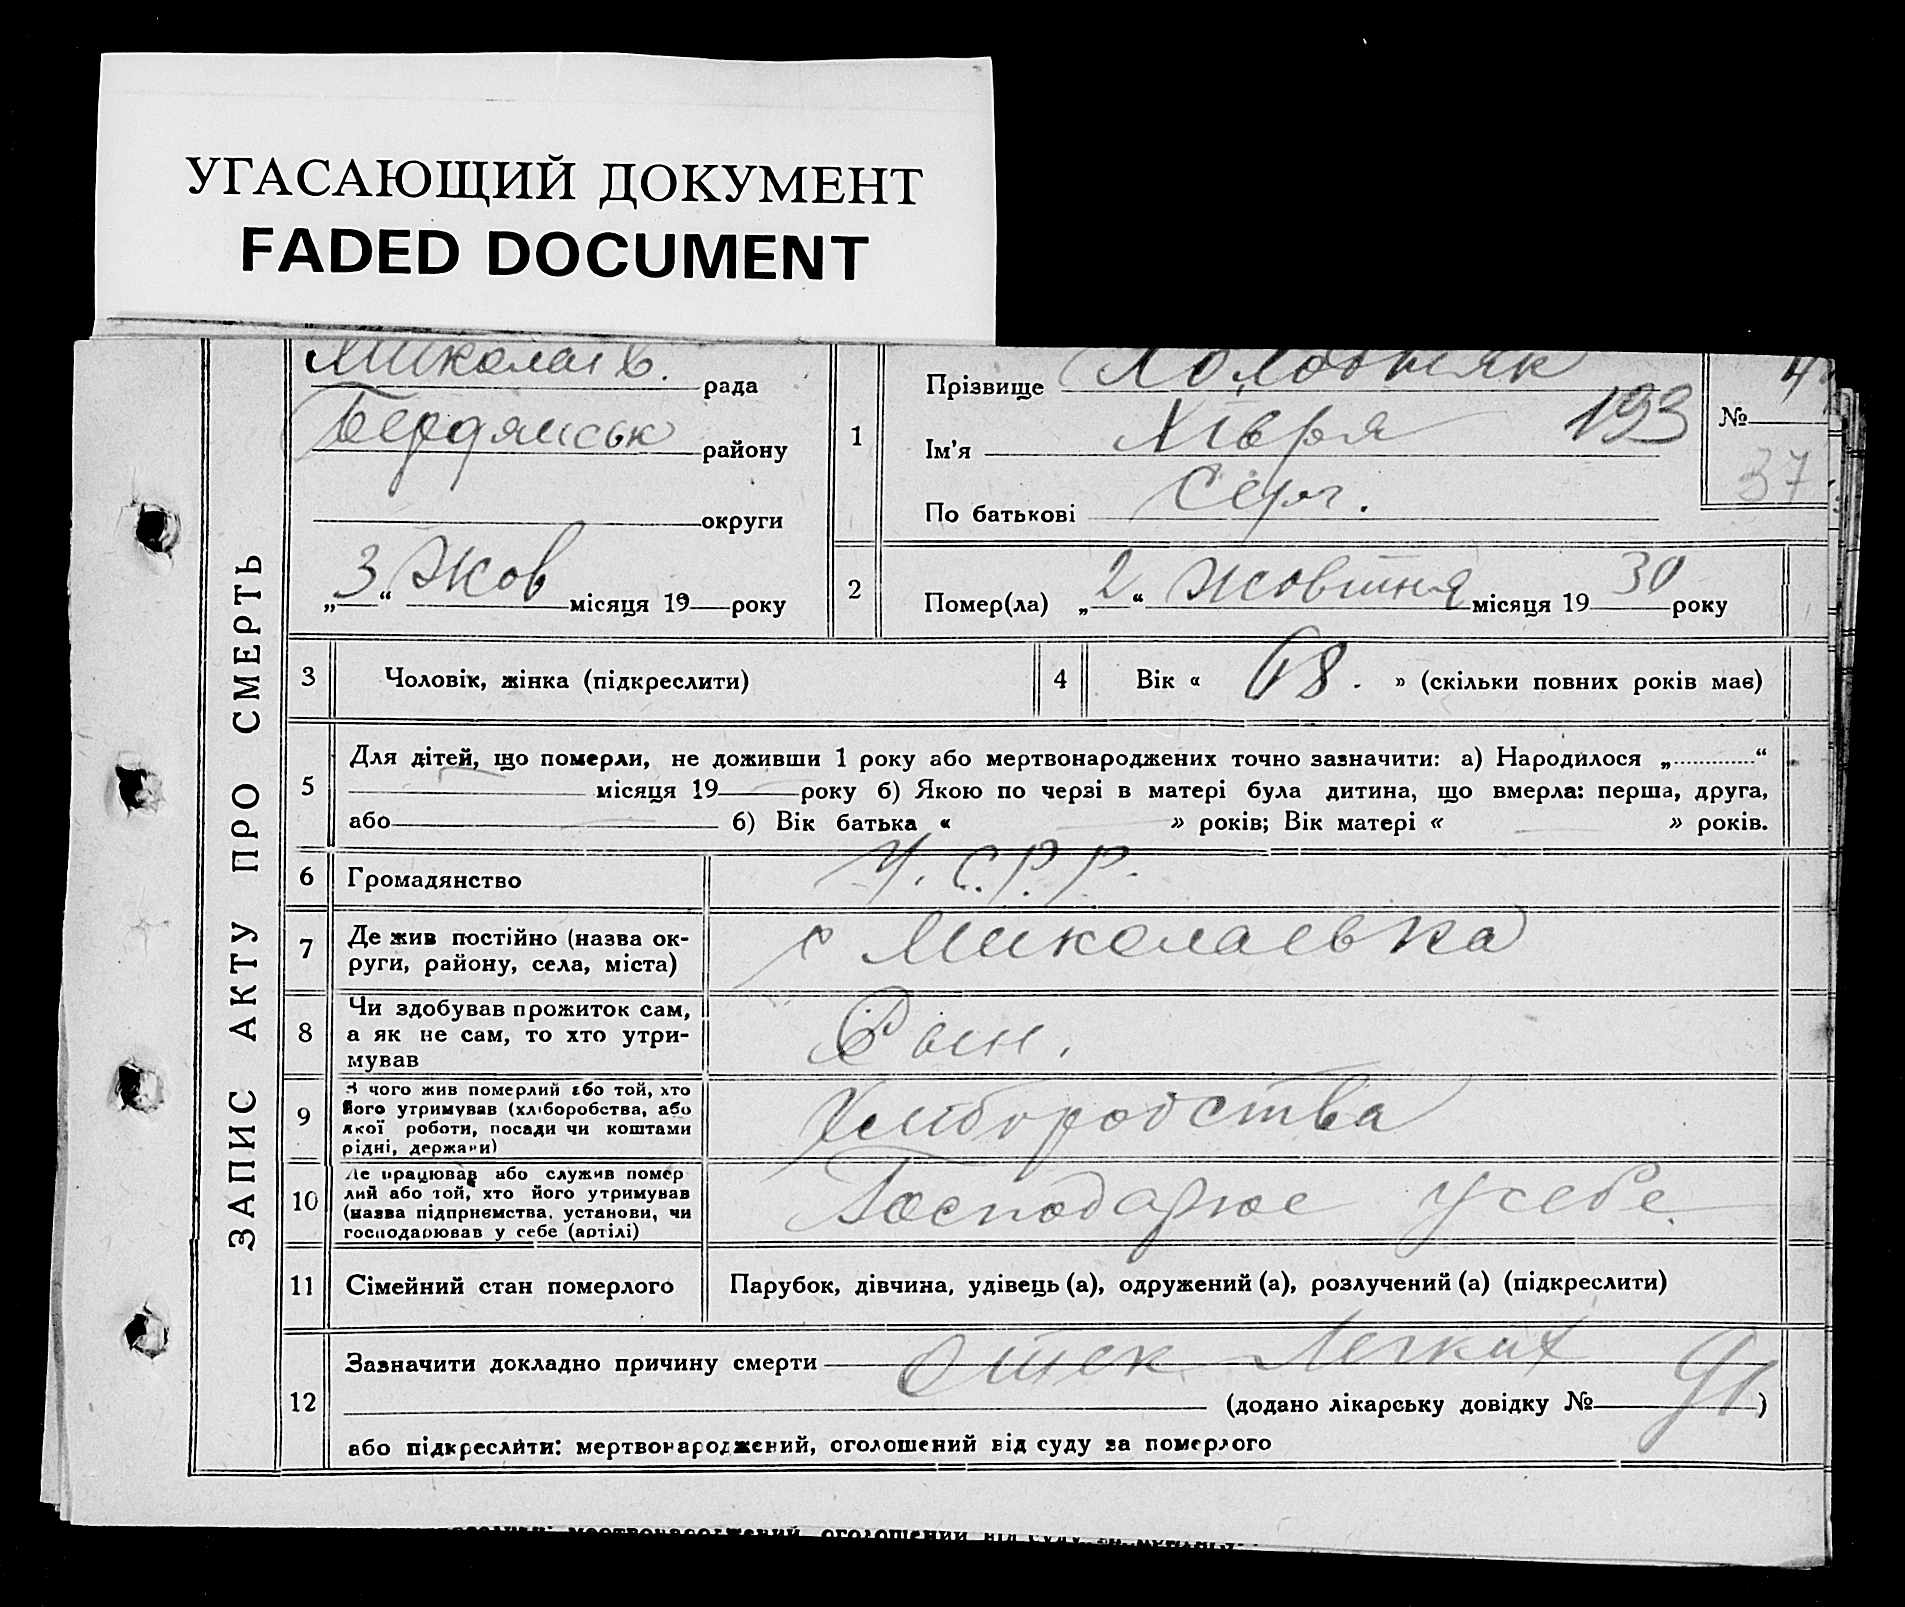 УГАСАЮЩИЙ ДОКУМЕНТ
FADED DOCUMENT
ЗАПИС АКТУ ПРО СМЕРТЬ
Миколаїв. рада
Бердянськ району
округи
„3“ Жов місяця 19 року
1
Прізвище Холодняк
Ім'я Хівря 193
По батькові Серг.
№
37
2
Помер(ла) „2“ жовтня місяця 1930 року
3 Чоловік, жінка (підкреслити)
4 Вік « 68. » (скільки повних років має)
5 Для дітей, що померли, не доживши 1 року або мертвонароджених точно зазначити: а) Народилося „ “
місяця 19 року б) Якою по черзі в матері була дитина, що вмерла: перша, друга,
або б) Вік батька « » років; Вік матері « » років.
6 Громадянство У.С.Р.Р.
7 Де жив постійно (назва ок-
руги, району, села, міста)
с Миколаевка
8 Чи здобував прожиток сам,
а як не сам, то хто утри-
мував
Сын.
9 З чого жив померлий або той, хто
його утримував (хліборобства, або
якої роботи, посади чи коштами
рідні, держави)
Хлиборобства
10 Де працював або служив помер
лий або той, хто його утримував
(назва підприємства, установи, чи
господарював у себе (артілі)
Господарює у себе
11 Сімейний стан померлого Парубок, дівчина, удівець (а), одружений (а), розлучений (а) (підкреслити)
12 Зазначити докладно причину смерти Отек Легких
(додано лікарську довідку № 91)
або підкреслити: мертвонароджений, оголошений від суду за померлого